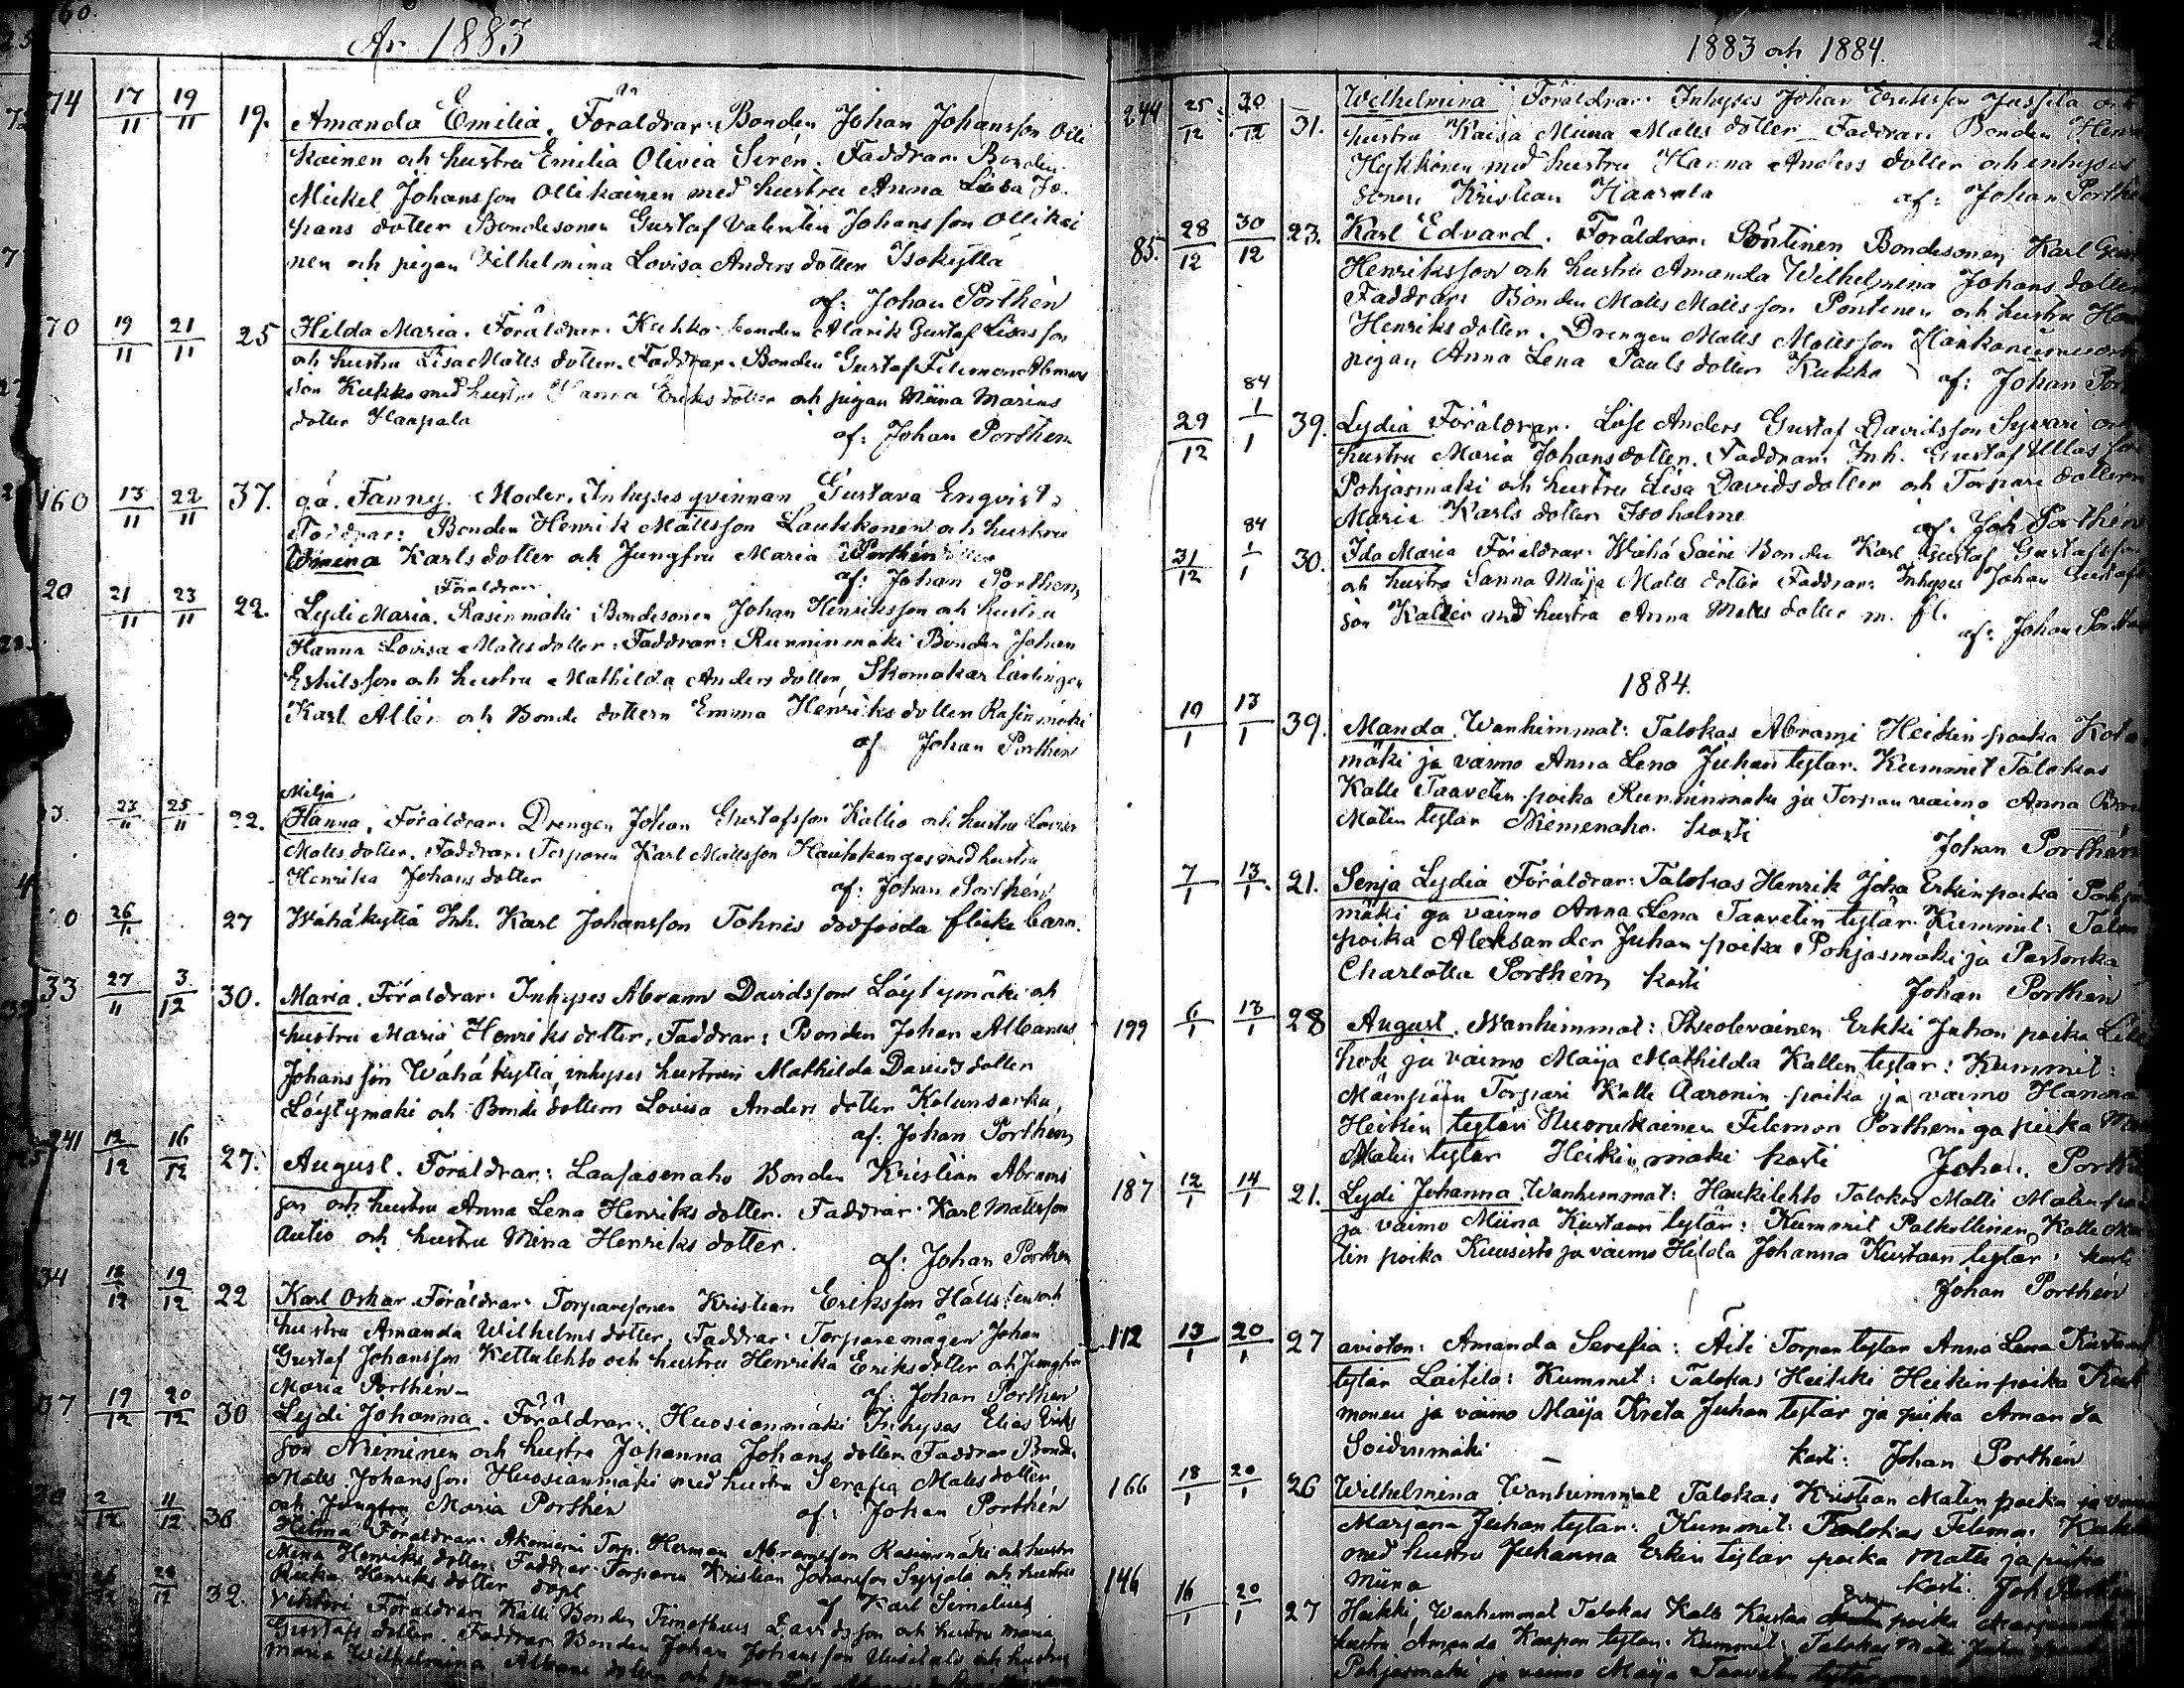 260.
År 1883
74 17/11 19/11 19. Amanda Emilia. Föräldrar: Bonden Johan Johansson Olli
kainen och hustru Emilia Olivia Sirén. Faddrar: Bonden
Mickel Johansson Ollikainen med hustru Anna Lisa Jo-
hans dotter Bondesonen Gustaf Valentin Johansson Ollikai
nen och pigan Vilhelmina Lovisa Anders dotter Isokyttä
af: Johan Porthén
70 19/11 21/11 25 Hilda Maria. Föräldrar: Kukko bonden Alarik Gustaf Lisasson
och hustru Lisa Matts dotter. Faddrar: Bonden Gustaf Filemon
son Kukko med hustru Hanna Eriks dotter och pigan Miina Marias
dotter Haapala
af: Johan Porthén
160 13/11 22/11 37. oä. Fanny. Moder: Inhyses qvinnan Gustava Enqvist.
Faddrar: Bonden Henrik Mattsson Laukkonen och hustru
Wimina Karls dotter och Jungfru Maria Porthén
af: Johan Porthén
Föräldrar
20 21/11 23/11 22. Lydi Maria. Rasinmäki Bondesonen Johan Henriksson och hustru
Hanna Lovisa Mattsdotter: Faddrar: Runninmäki Bonden Johan
Eskilsson och hustru Mathilda Anders dotter, Skomakar lärlingen
Karl Allén och Bonde dottern Emma Henriks dotter Rasinmäki
af Johan Porthén
Milja
3. 23/11 25/11 22. Hanna. Föräldrar: Drengen Johan Gustafsson Kallio och hustru Lovisa
Matts dotter. Faddrar: Torparen Karl Mattsson Hautakangas med hustru
Henrika Johans dotter
af: Johan Porthén
0 26/11 27 Wähäkyttä Inh. Karl Johansson Tohnis dödfödda flicke barn.
33 27/11 3/12 30. Maria. Föräldrar: Inhyses Abram Davidsson Löytymäki och
hustru Maria Henriks dotter. Faddrar: Bonden Johan Albanus
Johansson Wähäkyttä, inhyses hustrun Mathilda Davids dotter
Löytymäki och Bonde dottern Lovisa Anders dotter Kolunsarka
af: Johan Porthén
241 12/12 16/12 27. August. Föräldrar: Laasasenaho Bonden Kristian Abrams
son och hustru Anna Lena Henriks dotter. Faddrar: Karl Mattsson
Autio och hustru Miina Henriks dotter.
af: Johan Porthén
34 18/12 19/12 22 Karl Oskar. Föräldrar: Torparesonen Kristian Eriksson Hällsten och
hustru Amanda Wilhelms dotter. Faddrar: Torparemågen Johan
Gustaf Johansson Kettulehto och hustru Henrika Eriksdotter och Jungfru
Maria Porthén
af: Johan Porthén
37 19/12 20/12 30 Lydi Johanna. Föräldrar: Huosianmäki Inhyses Elias Eriks
son Nieminen och hustru Johanna Johans dotter Faddrar Bonden
Matts Johansson Huosianmäki med hustru Serafia Mattsdotter
och Jungfru Maria Porthén
af: Johan Porthén
2/12 11/12 36 Hilma Föräldrar: Akoniemi Torp. Herman Abramsson Rasinmäki och hustru
Miina Henriks dotter: Faddrar: Torparen Kristian Johansson Syrjälä och hustru
Henriks dotter döpt af Karl Simelius
32. Viktori Föräldrar Kalli Bonden Timotheus Davidsson och hustru Maria
Gustafs dotter. Faddrar Bonden Johan Johansson Uusitalo och hustru
Maria Wilhelmina
1883 och 1884.
244 25/12 30/12 31. Wilhelmina Föräldrar: Inhyses Johan Eriksson Jussila och
hustru Kaisa Miina Matts dotter Faddrar: Bonden Henrik
Hytkönen med hustru Hanna Anders dotter och inhyses
sonen Kristian Haapala
af: Johan Porthén
85. 28/12 30/12 23. Karl Edvard. Föräldrar: Pöntinen Bondesonen Karl
Henriksson och hustru Amanda Wilhelmina Johans dotter
Faddrar: Bonden Matts Mattsson Pöntinen och hustru
Henriks dotter. Drengen Matts Mattsson
pigan Anna Lena Pauls dotter Kukko
af: Johan Por
84
29/12 1/1 39. Lydia Föräldrar: Lose Anders Gustaf Davidsson Syväri och
hustru Maria Johansdotter. Faddrar: Inh. Gustaf Ullasson
Pohjasmäki och hustru Lisa Davidsdotter och Torpare dottern
Maria Karls dotter Isoholme
af: Joh Porthén
84
31/12 1/1 30. Ida Maria Föräldrar: Wähä Saire Bonden Karl Gustaf Gustafsson
och hustru Sanna Maija Matts dotter Faddrar: Inhyses Johan Gustafs
son Kallio med hustru Anna Matts dotter m. fl.
af: Johan Porthén
1884.
10/1 13/1 39. Manda Wanhimmat: Talokas Abrami Heikin poika Kota
mäki ja vaimo Anna Lena Juhan tytär. Kummit Talokas
Kalle Taavetin poika Runninmäki ja Torpan vaimo Anna
Matin tytär Niemenaho. kasti
Johan Porthén
7/1 13/1 21. Senja Lydia Föräldrar: Talokas Henrik Joha Erkinpoika Pohjas
mäki ja vaimo Anna Lena Taavetin tytär Kummit: Talon
poika Aleksander Juhan poika Pohjasmäki ja Pastorska
Charlotta Porthén kasti
Johan Porthén
199 6/1 13/1 28 August. Wanhimmat: Itseolevainen Erkki Juhan poika
ja vaimo Maija Mathilda Kallen tytär: Kummit:
Mäenpään Torpari Kalle Aaronin poika ja vaimo Hanna
Heikin tytär Nuorukainen Filemon Porthén ja piika
Matin tytär Heikinmäki kasti
Johan Porthén
187 12/1 14/1 21. Lydi Johanna Wanhimmat: Haukilehto Talokas Matti Matin poika
ja vaimo Miina Kustaan tytär: Kummit Palkollinen Kalle Mat
tin poika Kuusisto ja vaimo Hilda Johanna Kustaan tytär: kasti
Johan Porthén
112 13/1 20/1 27 avioton: Amanda Serefia: Äiti Torpan tytär Anna Lena Kustaan
tytär Laitila: Kummit: Talokas Heikki Heikin poika
monen ja vaimo Maija Kreta Juhan tytär ja piika Amanda
Soidinmäki
kasti: Johan Porthén
166 18/1 20/1 26 Wilhelmina Wanhimmat Talokas Kristian Matin poika ja vaimo
Marjana Juhan tytär: Kummit: Talokas Filemon Kukko
med hustru Juhanna Erkin tytär poika Matti ja piika
Miina
kasti. Joh Porthén
146 16/1 20/1 27 Heikki, Wanhemmat Talokas Kalle Kustaa poika
hustru Amanda Kaapon tytär: Kummit: Talokas Matti Juhan
Pohjasmäki ja vaimo Maija Taavetin tytär